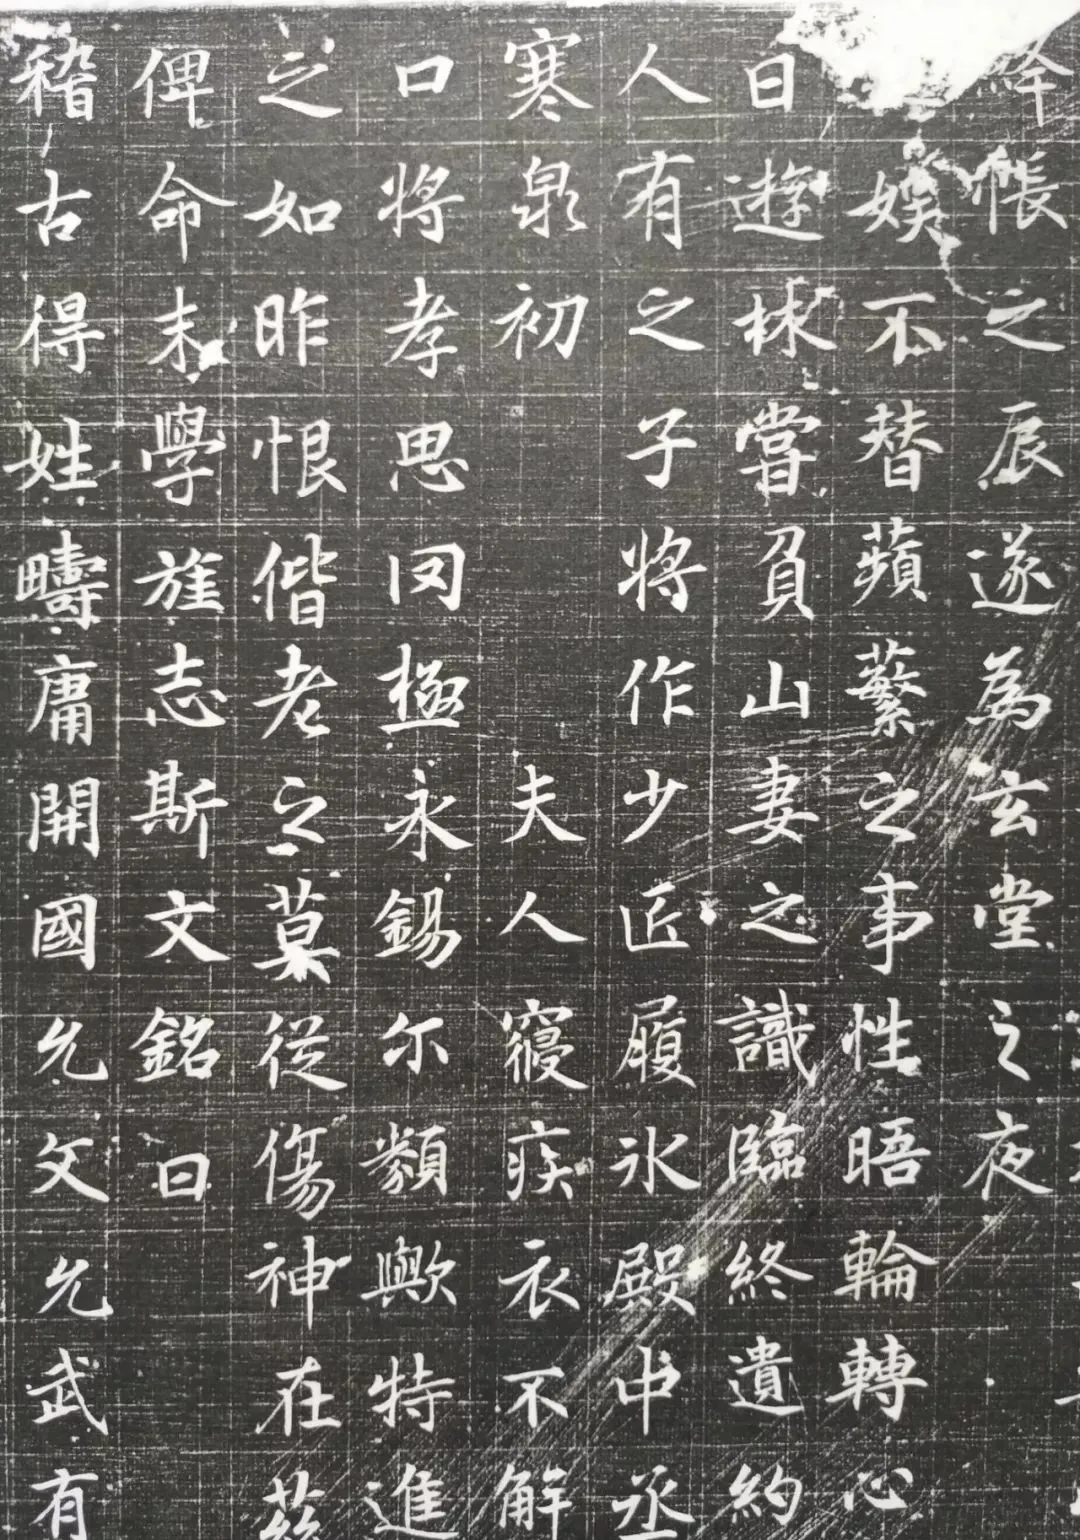 絳帳之辰遂為玄堂之夜
娛不替蘋蘩之事性晤輪轉心
日遊林嘗負山妻之識臨終遺約
人有之子將作少匠履氷殿中丞
寒泉初夫人寑疾衣不解
口將孝思罔極永錫尒類歟特進
之如昨恨偕老之莫從傷神在茲
俾命末學旌志斯文銘曰
稽古得姓疇庸開國允文允武有